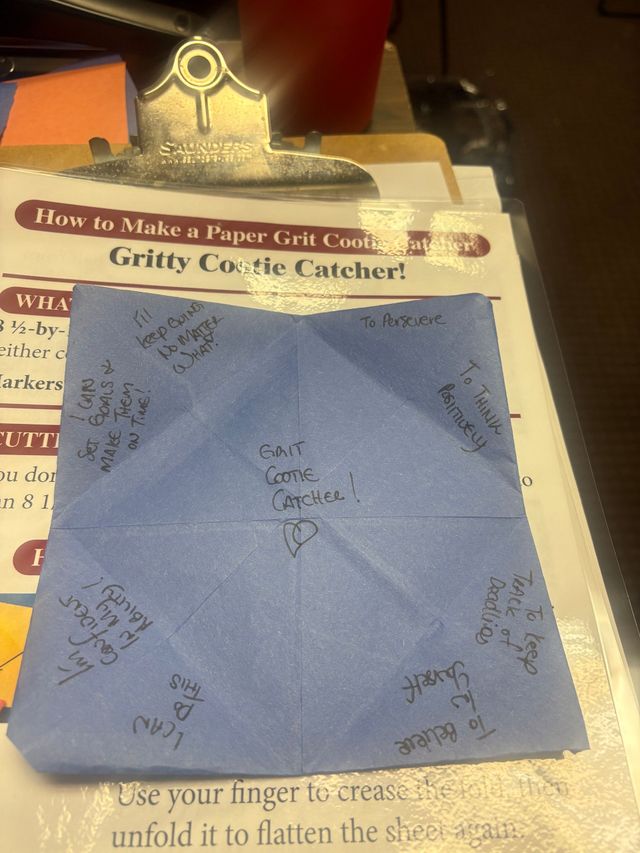 SAUNDERS
How to Make a Paper Grit Cootie Catcher
Gritty Cootie Catcher!
WHA
8 ½-by-
either c
Markers
CUTTI
ou don
an 8 1/
o
H
I'll
keep GOING
NO MATTER
WHAT!
To Persevere
I CAN
SET GOALS &
MAKE THEM
ON TIME!
To THINK
POSITIVELY
GRIT
COOTIE
CATCHER!
I'm
CONFIDENT
IN MY
ABILITY!
To keep
TRACK of
Deadlines
I CAN
Do
THIS
To Believe
IN
Yourself
Use your finger to crease the fold, then
unfold it to flatten the sheet again.